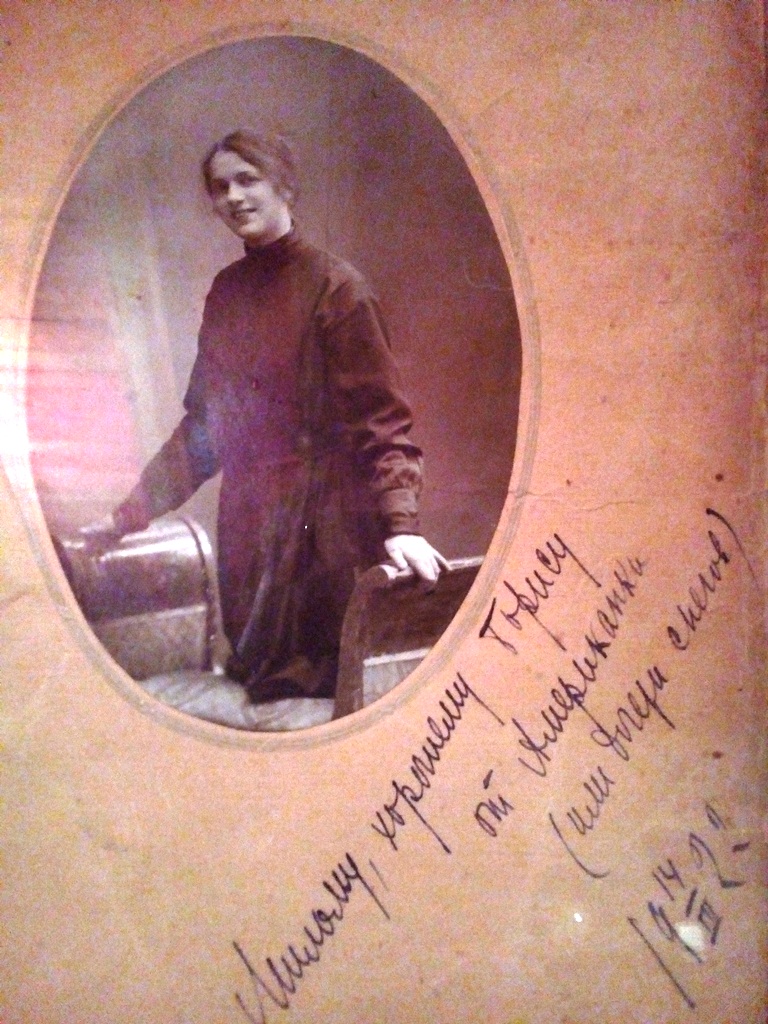 Милому, хорошему Борису
от Американки
(или дочери снегов)
19 14/III 22.